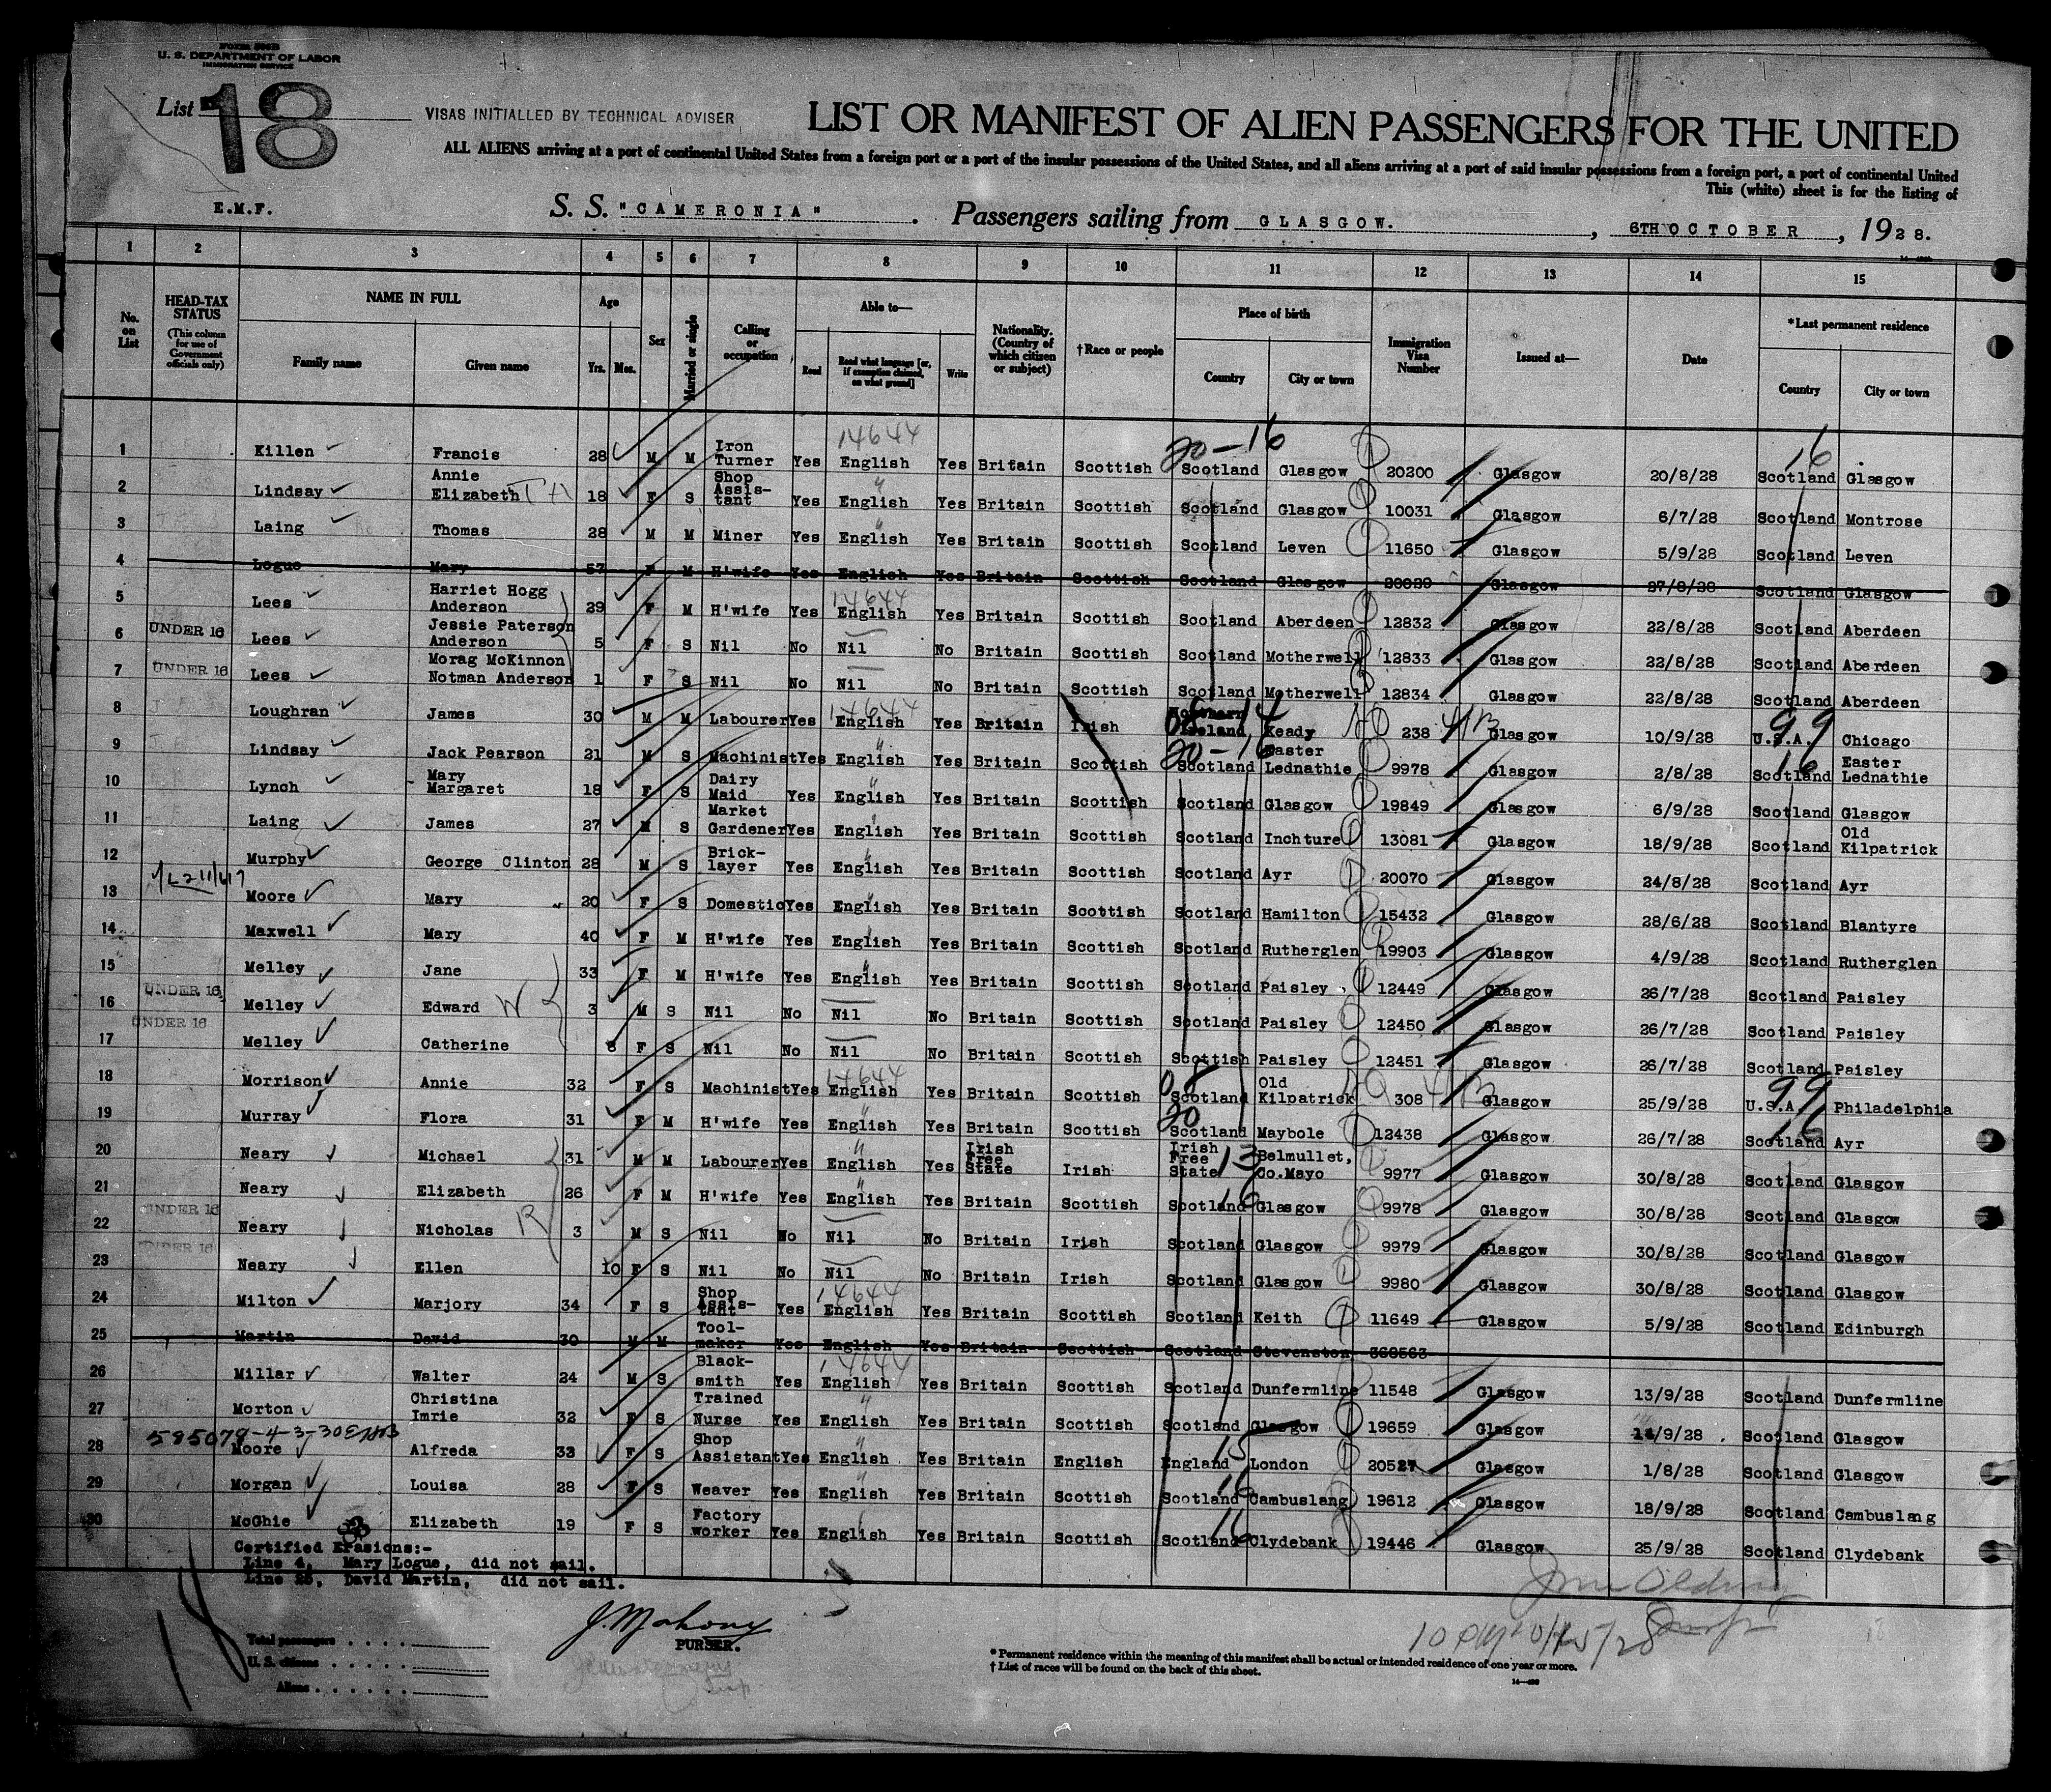 FORM 500B
U. S. DEPARTMENT OF LABOR
IMMIGRATION SERVICE
List 18
VISAS INITIALLED BY TECHNICAL ADVISER
LIST OR MANIFEST OF ALIEN PASSENGERS FOR THE UNITED
ALL ALIENS arriving at a port of continental United States from a foreign port or a port of the insular possessions of the United States, and all aliens arriving at a port of said insular possessions from a foreign port, a port of continental United
This (white) sheet is for the listing of
E.M.F.
S. S. "CAMERONIA" . Passengers sailing from GLASGOW. , 6TH OCTOBER , 1928.
1 2 3 4 5 6 7 8 9 10 11 12 13 14 15
No. on List
HEAD-TAX STATUS (This column for use of Government officials only)
NAME IN FULL
Family name Given name
Age Yrs. Mos.
Sex
Married or single
Calling or occupation
Able to—
Read Read what language [or, if exemption claimed, on what ground] Write
Nationality. (Country of which citizen or subject)
†Race or people
Place of birth
Country City or town
Immigration Visa Number
Issued at—
Date
*Last permanent residence
Country City or town
14644 20-16 16
1 Killen Francis 28 M M Iron Turner Yes English Yes Britain Scottish Scotland Glasgow 20200 Glasgow 20/8/28 Scotland Glasgow
2 Lindsay Annie Elizabeth 18 F S Shop Assis-tant Yes English Yes Britain Scottish Scotland Glasgow 10031 Glasgow 6/7/28 Scotland Montrose
3 Laing Thomas 28 M M Miner Yes English Yes Britain Scottish Scotland Leven 11650 Glasgow 5/9/28 Scotland Leven
4 Logue Mary 57 F M H'wife Yes English Yes Britain Scottish Scotland Glasgow Glasgow 27/8/28 Scotland Glasgow
5 Lees Harriet Hogg Anderson 29 F M H'wife Yes 14644 English Yes Britain Scottish Scotland Aberdeen 12832 Glasgow 22/8/28 Scotland Aberdeen
6 UNDER 16 Lees Jessie Paterson Anderson 5 F S Nil No Nil No Britain Scottish Scotland Motherwell 12833 Glasgow 22/8/28 Scotland Aberdeen
7 UNDER 16 Lees Morag McKinnon Notman Anderson 1 F S Nil No Nil No Britain Scottish Scotland Motherwell 12834 Glasgow 22/8/28 Scotland Aberdeen
8 Loughran James 30 M M Labourer Yes 14644 English Yes Britain Irish Northern Ireland Keady 238 Glasgow 10/9/28 U.S.A. 99 Chicago
9 Lindsay Jack Pearson 21 M S Machinist Yes English Yes Britain Scottish 20-16 Scotland Easter Lednathie 9978 Glasgow 2/8/28 Scotland 16 Easter Lednathie
10 Lynch Mary Margaret 18 F S Dairy Maid Yes English Yes Britain Scottish Scotland Glasgow 19849 Glasgow 6/9/28 Scotland Glasgow
11 Laing James 27 M S Market Gardener Yes English Yes Britain Scottish Scotland Inchture 13081 Glasgow 18/9/28 Scotland Old Kilpatrick
12 Murphy George Clinton 28 M S Brick-layer Yes English Yes Britain Scottish Scotland Ayr 20070 Glasgow 24/8/28 Scotland Ayr
13 Moore Mary 20 F S Domestic Yes English Yes Britain Scottish Scotland Hamilton 15432 Glasgow 28/6/28 Scotland Blantyre
14 Maxwell Mary 40 F M H'wife Yes English Yes Britain Scottish Scotland Rutherglen 19903 Glasgow 4/9/28 Scotland Rutherglen
15 Melley Jane 33 F M H'wife Yes English Yes Britain Scottish Scotland Paisley 12449 Glasgow 26/7/28 Scotland Paisley
16 UNDER 16 Melley Edward 3 M S Nil No Nil No Britain Scottish Scotland Paisley 12450 Glasgow 26/7/28 Scotland Paisley
17 UNDER 16 Melley Catherine 8 F S Nil No Nil No Britain Scottish Scottish Paisley 12451 Glasgow 26/7/28 Scotland Paisley
18 Morrison Annie 32 F S Machinist Yes 14644 English Yes Britain Scottish Scotland Old Kilpatrick 308 Glasgow 25/9/28 U.S.A. 99 Philadelphia
19 Murray Flora 31 F M H'wife Yes English Yes Britain Scottish 20 Scotland Maybole 12438 Glasgow 26/7/28 Scotland 16 Ayr
20 Neary Michael 31 M M Labourer Yes English Yes Irish Free State Irish Irish Free State 13 Belmullet, Co.Mayo 9977 Glasgow 30/8/28 Scotland Glasgow
21 Neary Elizabeth 26 F M H'wife Yes English Yes Britain Scottish Scotland 16 Glasgow 9978 Glasgow 30/8/28 Scotland Glasgow
22 UNDER 16 Neary Nicholas 3 M S Nil No Nil No Britain Irish Scotland Glasgow 9979 Glasgow 30/8/28 Scotland Glasgow
23 UNDER 16 Neary Ellen 10 F S Nil No Nil No Britain Irish Scotland Glasgow 9980 Glasgow 30/8/28 Scotland Glasgow
24 Milton Marjory 34 F S Shop Assis-tant Yes 14644 English Yes Britain Scottish Scotland Keith 11649 Glasgow 5/9/28 Scotland Edinburgh
25 Martin David 30 M M Tool-maker Yes English Yes Britain Scottish Scotland Stevenston 368563
26 Millar Walter 24 M S Black-smith Yes 14644 English Yes Britain Scottish Scotland Dunfermline 11548 Glasgow 13/9/28 Scotland Dunfermline
27 Morton Christina Imrie 32 F S Trained Nurse Yes English Yes Britain Scottish Scotland Glasgow 19659 Glasgow /9/28 Scotland Glasgow
585079-4-3-30
28 Moore Alfreda 33 F S Shop Assistant Yes English Yes Britain English England 15 London 20527 Glasgow 1/8/28 Scotland Glasgow
29 Morgan Louisa 28 F S Weaver Yes English Yes Britain Scottish Scotland 16 Cambuslang 19612 Glasgow 18/9/28 Scotland Cambuslang
30 McGhie Elizabeth 19 F S Factory worker Yes English Yes Britain Scottish Scotland 16 Clydebank 19446 Glasgow 25/9/28 Scotland Clydebank
Certified Erasions:-
Line 4, Mary Logue, did not sail.
Line 25, David Martin, did not sail.
J. Mahony
PURSER.
Total passengers
U. S. citizens
Aliens
* Permanent residence within the meaning of this manifest shall be actual or intended residence of one year or more.
† List of races will be found on the back of this sheet.